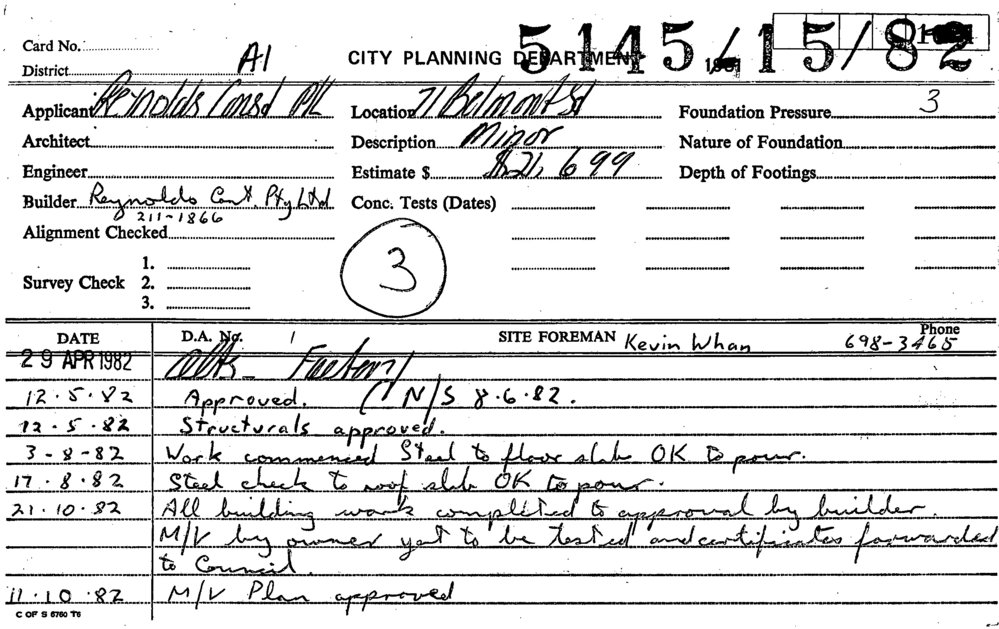 5145 15/82
Card No.
CITY PLANNING DEPARTMENT
District A1
Applicant Reynolds Const P/L Location 71 Belmont St Foundation Pressure 3
Architect Description Minor Nature of Foundation
Engineer Estimate $ $21,699 Depth of Footings
Builder Reynolds Const. Pty Ltd Conc. Tests (Dates)
211-1866
Alignment Checked
3
1.
Survey Check 2.
3.
DATE D.A. No. SITE FOREMAN Kevin Whan Phone 698-3465
29 APR 1982 Alts - Factory
12.5.82 Approved. (N/S 8.6.82.
12.5.82 Structurals approved.
3-8-82 Work commenced Steel to floor slab OK to pour.
17.8.82 Steel check to roof slab OK to pour.
21.10.82 All building work completed to approval by builder.
M/V by owner yet to be tested and certificates forwarded
to Council.
11.10.82 M/V Plan approved
C OF S 6760 T6